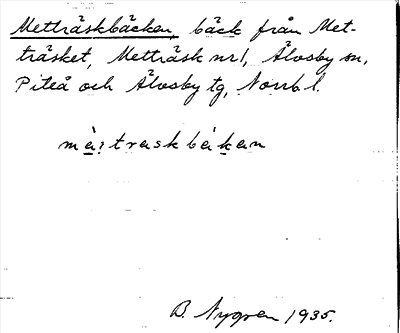 Metträskbäcken, bäck från Met-
träsket, Metträsk nr 1, Älvsby sn,
Piteå och Älvsby tg, Norrb. l.
B. Nygren 1935.